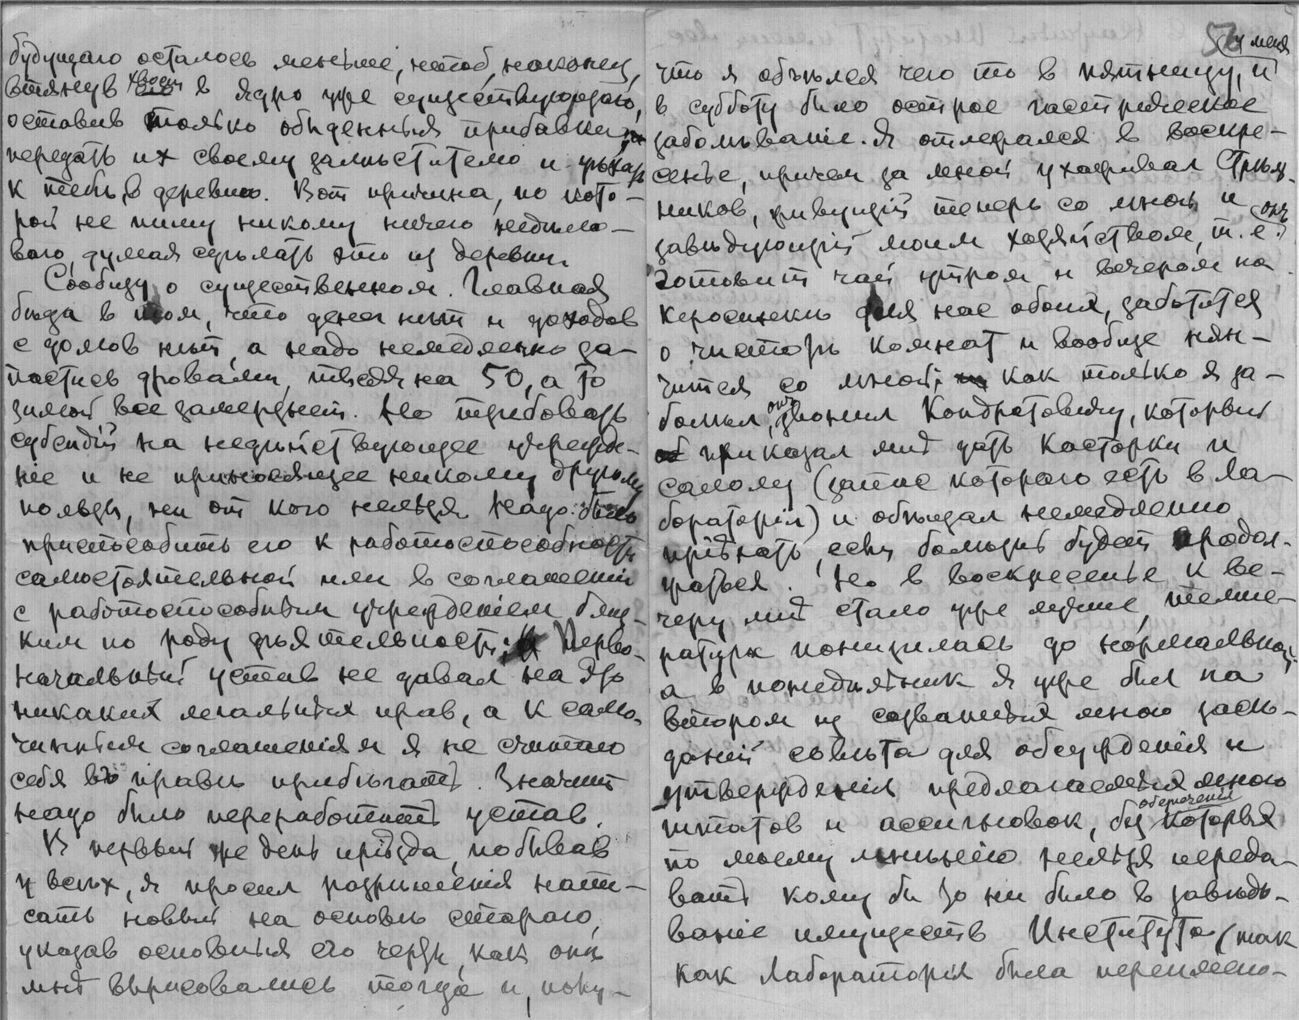 будущаго осталось меньше, чтоб, наконец,
втянув в ядро уже существующаго,
оставив только обыденныя прибавки,
передать их своему заместителю и уехать
к тебе в деревню. Вот причина, по кото-
рой не пишу никому ничего недело-
вого, думая сделать это из деревни.
Сообщу о существенном. Главная
беда в том, что денег нет и доходов
с домов нет, а надо немедленно за-
пастись дровами, тысяч на 50, а то
зимой все замерзнет. Но требовать
субсидий на недействующее учрежде-
ніе и не приносящее никому другому
пользы, ни от кого нельзя. Надо было
приспособить его к работоспособности
самостоятельной или в соглашеніи
с работоспособным учрежденіем близ-
ким по роду деятельности. Перво-
начальный устав не давал на это
никаких легальных прав, а к само-
чинным соглашеніям я не считаю
себя в праве прибегать. Значит
надо было переработать устав.
В первый же день пріезда, побывав
у всех, я просил разрешенія напи-
сать новый на основе стараго,
указав основныя его черты, как они
мне вырисовались тогда и, поку-
56
у меня
что я объелся чего то в пятницу, и
в субботу было острое гастрическое
заболеваніе. Я отлежался в воскре-
сенье, причем за мной ухаживал Стрель-
ников, живущій теперь со мной и
заведующій моим хозяйством, т. е. он
готовит чай утром и вечером на
керосинке для нас обоих, заботится
о чистоте комнат и вообще нян-
чится со мной; как только я за-
болел, он звонил Кондратовичу, который
приказал мне дать касторки и
салолу (запас котораго есть в ла-
бораторіи) и обещал немедленно
пріехать, если болезнь будет продол-
жаться. Но в воскресенье к ве-
черу мне стало уже лучше, темпе-
ратура понизилась до нормальной,
а в понедельник я уже был на
втором из созванных мною засе-
даній совета для обсужденія и
утвержденія предлагаемых мною
штатов и ассигновок, без обспеченія которых
по моему мненію нельзя переда-
вать кому бы то ни было в заведы-
ваніе имуществ Института (так
как Лабораторія была переимено-